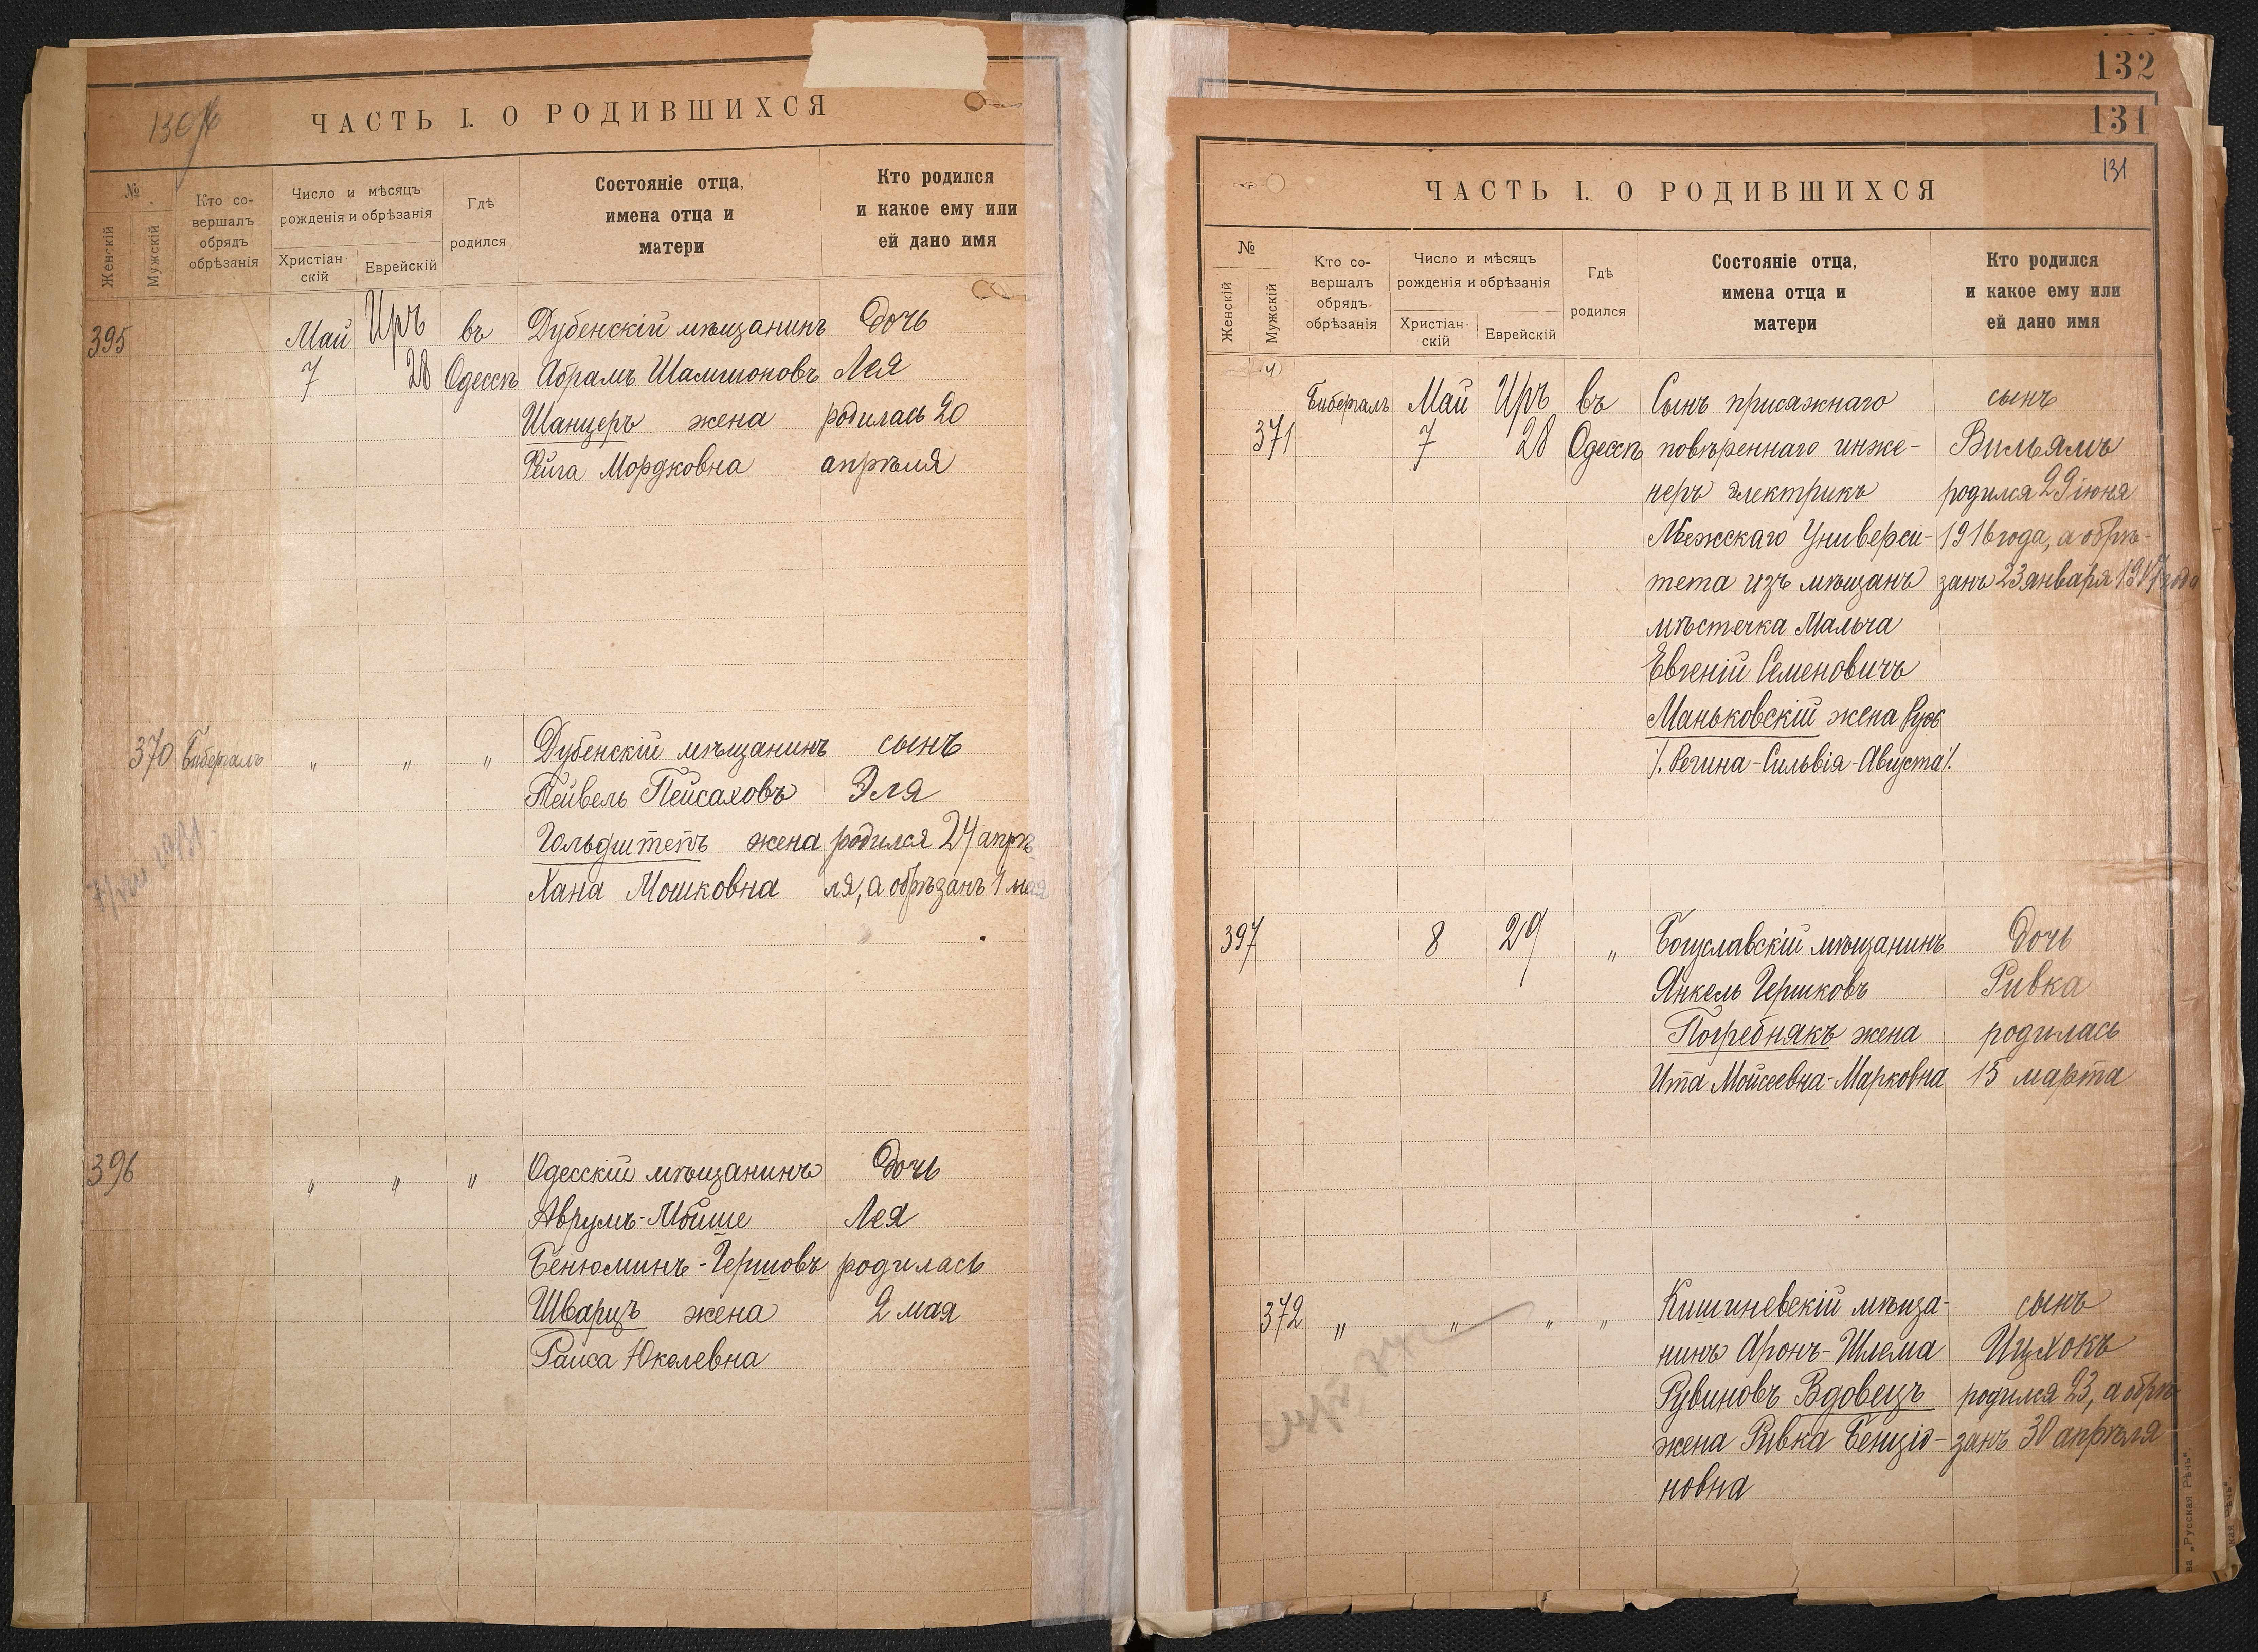 ЧАСТЬ I. О РОДИВШИХСЯ
№
Женскій
Мужскій
Кто со-
вершалъ
обрядъ
обрѣзанія
Число и мѣсяцъ
рожденія и обрѣзанія
Христіан-
скій
Еврейскій
Гдѣ
родился
Состояніе отца,
имена отца и
матери
Кто родился
и какое ему или
ей дано имя
395 Май Иръ въ Дубенскій мѣщанинъ дочь
7 28 Одессѣ Абрамъ Шамшоновъ Лея
Шанцеръ жена родилась 20
Фейга Мордковна апрѣля
370 Биберталъ " " " Дубенскій мѣщанинъ сынъ
Тейвель Пейсаховъ Эля
Гольдштепъ жена родился 24 апрѣ-
Хана Мошковна ля, а обрѣзанъ 1 мая
396 " " " Одесскій мѣщанинъ дочь
Аврумъ-Мойше Лея
Бенюминъ-Гершовъ родилась
Шварцъ жена 2 мая
Раиса Юкелевна
132
131
131
ЧАСТЬ I. О РОДИВШИХСЯ
№
Женскій
Мужскій
Кто со-
вершалъ
обрядъ
обрѣзанія
Число и мѣсяцъ
рожденія и обрѣзанія
Христіан-
скій
Еврейскій
Гдѣ
родился
Состояніе отца,
имена отца и
матери
Кто родился
и какое ему или
ей дано имя
Биберталъ Май Иръ въ Сынъ присяжнаго сынъ
371 7 28 Одессѣ повѣреннаго инже- Вильямъ
неръ электрикъ родился 29 іюня
Льежскаго Универси- 1916 года, а обрѣ-
тета изъ мѣщанъ занъ 23 января 1917 года
мѣстечка Мальча
Евгеній Семеновичъ
Маньковскій жена Руфь
/. Регина-Сильвія-Августа/.
397 8 29 " Богуславскій мѣщанинъ дочь
Янкель Гершковъ Ривка
Погребнякъ жена родилась
Ита Мойсеевна-Марковна 15 марта
372 " " " " Кишиневскій мѣща- сынъ
нинъ Аронъ-Шлема Ицхокъ
Рувиновъ Вдовецъ родился 23, а обрѣ-
жена Ривка Бенціо- занъ 30 апрѣля
новна
„Русская Рѣчь“